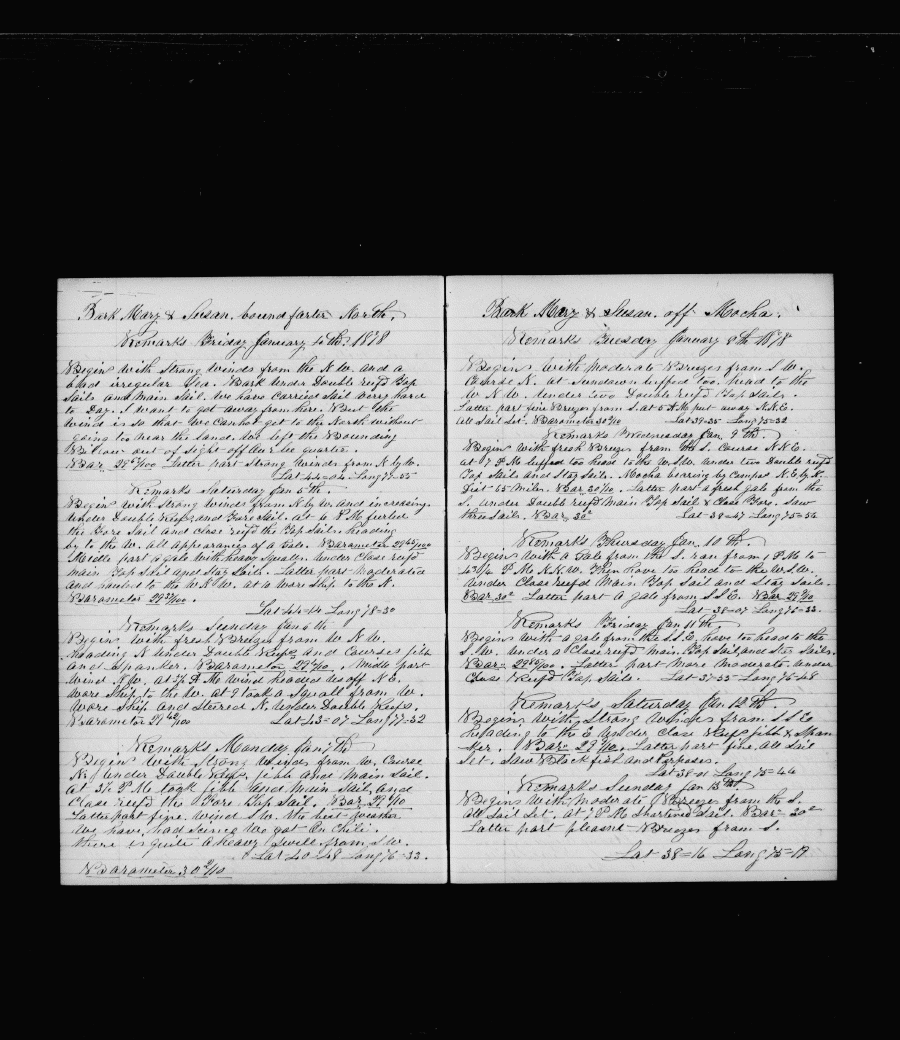 Bark Mary & Susan. bound farter North.
Remarks Friday January 4th 1878
Begin with Strong winds from the N.W. and a
bad irregular Sea. Bark under Double reef'd Top
Sails and main Sail. We have Carried Sail verry hard
to Day. I want to get away from here. But the
wind is so that we Cannot get to the North without
going too near the land. We left the Bounding
Billow out of Sight off Our lee quarter.
Bar. Latter part Strong winds from N. by W.
Lat 44=04 Long 77=55
Remarks Saturday Jan 5th
Begin with Strong winds from N. by W. and increasing.
under Double Reefs and Fore Sail. at 6 P.M. furled
the Fore Sail and Close reef'd the Top Sails heading
by to the W. all appearances of a Gale. Barometer
Middle part a gale with heavy Squalls under Close reef'd
main Top Sail and Stay Sails. Latter part Moderated
and hauled to the W.N.W. at 10 wore Ship to the N.
Barometer
Lat 44=14 Long 78=30
Remarks Sunday Jan 6th
Begins with fresh Breezes from W.N.W.
heading N. under Double Reefs and Courses jibb
and Spanker. Barometer Middle part
wind N.W. at P.M. wind headed us off N.E.
wore Ship to the W. at 9 took a Squall from W.
wore Ship and Steered N. under Double Reefs.
Barometer Lat 43=07 Long 77=32
Remarks Monday Jan 7th
Begin with Strong Winds from W. Course
under Double Reefs, jibb and Main Sail.
at 3½ P.M. took jibb and Main Sail and
Close reef'd the Fore Top Sail. Bar
Latter part fine. wind S.W. the best weather
we have had Since we got On Chili.
there is quite a heavy Swell from S.W.
Lat 40=48 Long 76=33.
Barometer
Bark Mary & Susan. off Mocha.
Remarks Tuesday January 8th 1878
Begins with moderate Breezes from S.W.
Course N. at Sundown luffed too. head to the
W.N.W. under two Double reef'd Top Sails.
Latter part fine Breezes from S. at 5 A.M. put away N.N.E.
All Sail Set. Barometer Lat 39=35 Long 75=32
Remarks Wednesday Jan. 9th
Begin with fresh Breezes from the S. Course N.N.E.
at 7 P.M. luffed too head to the W.S.W. under two Double reef'd
Top Sails and Stay Sail. Mocha bearing by Compas N.E. by N.
Dist 55 Miles. Bar Latter part a fresh gale from the
S. under Double reef'd Main Top Sail & Close Fore. Saw
three Sails. Bar Lat=38=47 Long 75=56
Remarks Thursday Jan 10th
Begins with a Gale from the S. ran from 1 P.M. to
P.M. N.N.W. Then hove too head to the W.S.W.
under Close reef'd Main Top Sail and Stay Sails.
Bar Latter part a gale from S.S.E. Bar
Lat=38=07 Long 76=33
Remarks Friday Jan 11th
Begins with a gale from the S.S.E. hove too head to the
S.W. under a Close reef'd main Top Sail and Stay Sails.
Bar= Latter part More Moderate. under
Close Reef'd Top Sails. Lat 37=55 Long 76=48
Remarks, Saturday Jan 12th
Begins with Strong Winds from S.S.E.
heading to the E. under Close Reefs jibb & Span
=ker. Bar= Latter part fine. All Sail
Set. Saw Black fish and Porpoises.
Lat 38=01 Long 75=46
Remarks Sunday Jan 13th
Begins with Moderate Breezes from the S.
All Sail Set. at 7 P.M. Shortened Sail. Bar=
Latter part pleasant Breezes from S.
Lat 38=16 Long 75=19